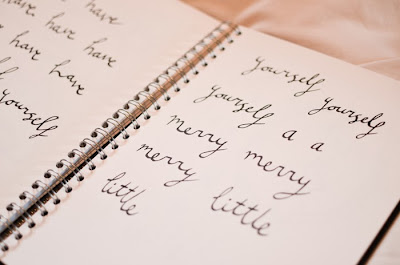 have
have have
have have
yourself
yourself yourself
yourself a a
merry merry
merry little
little